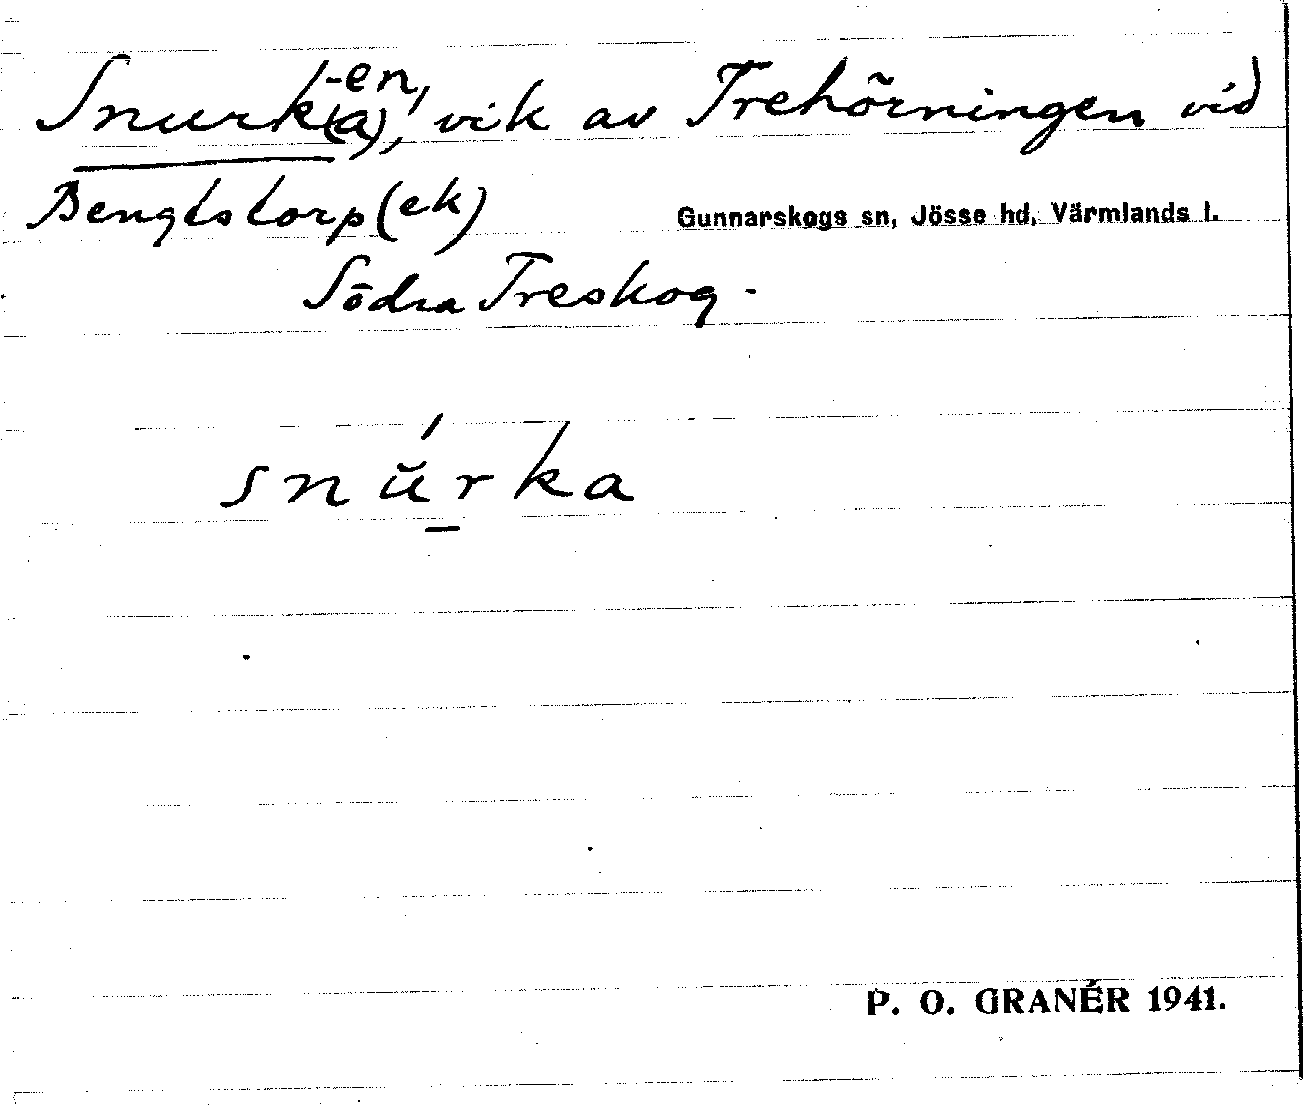 Snurk(a), -en, vik av Trehörningen vid
Bengtstorp (ek) Gunnarskogs sn, Jösse hd, Värmlands l.
Södra Treskog.
snŭ́rka
P. O. GRANÉR 1941.